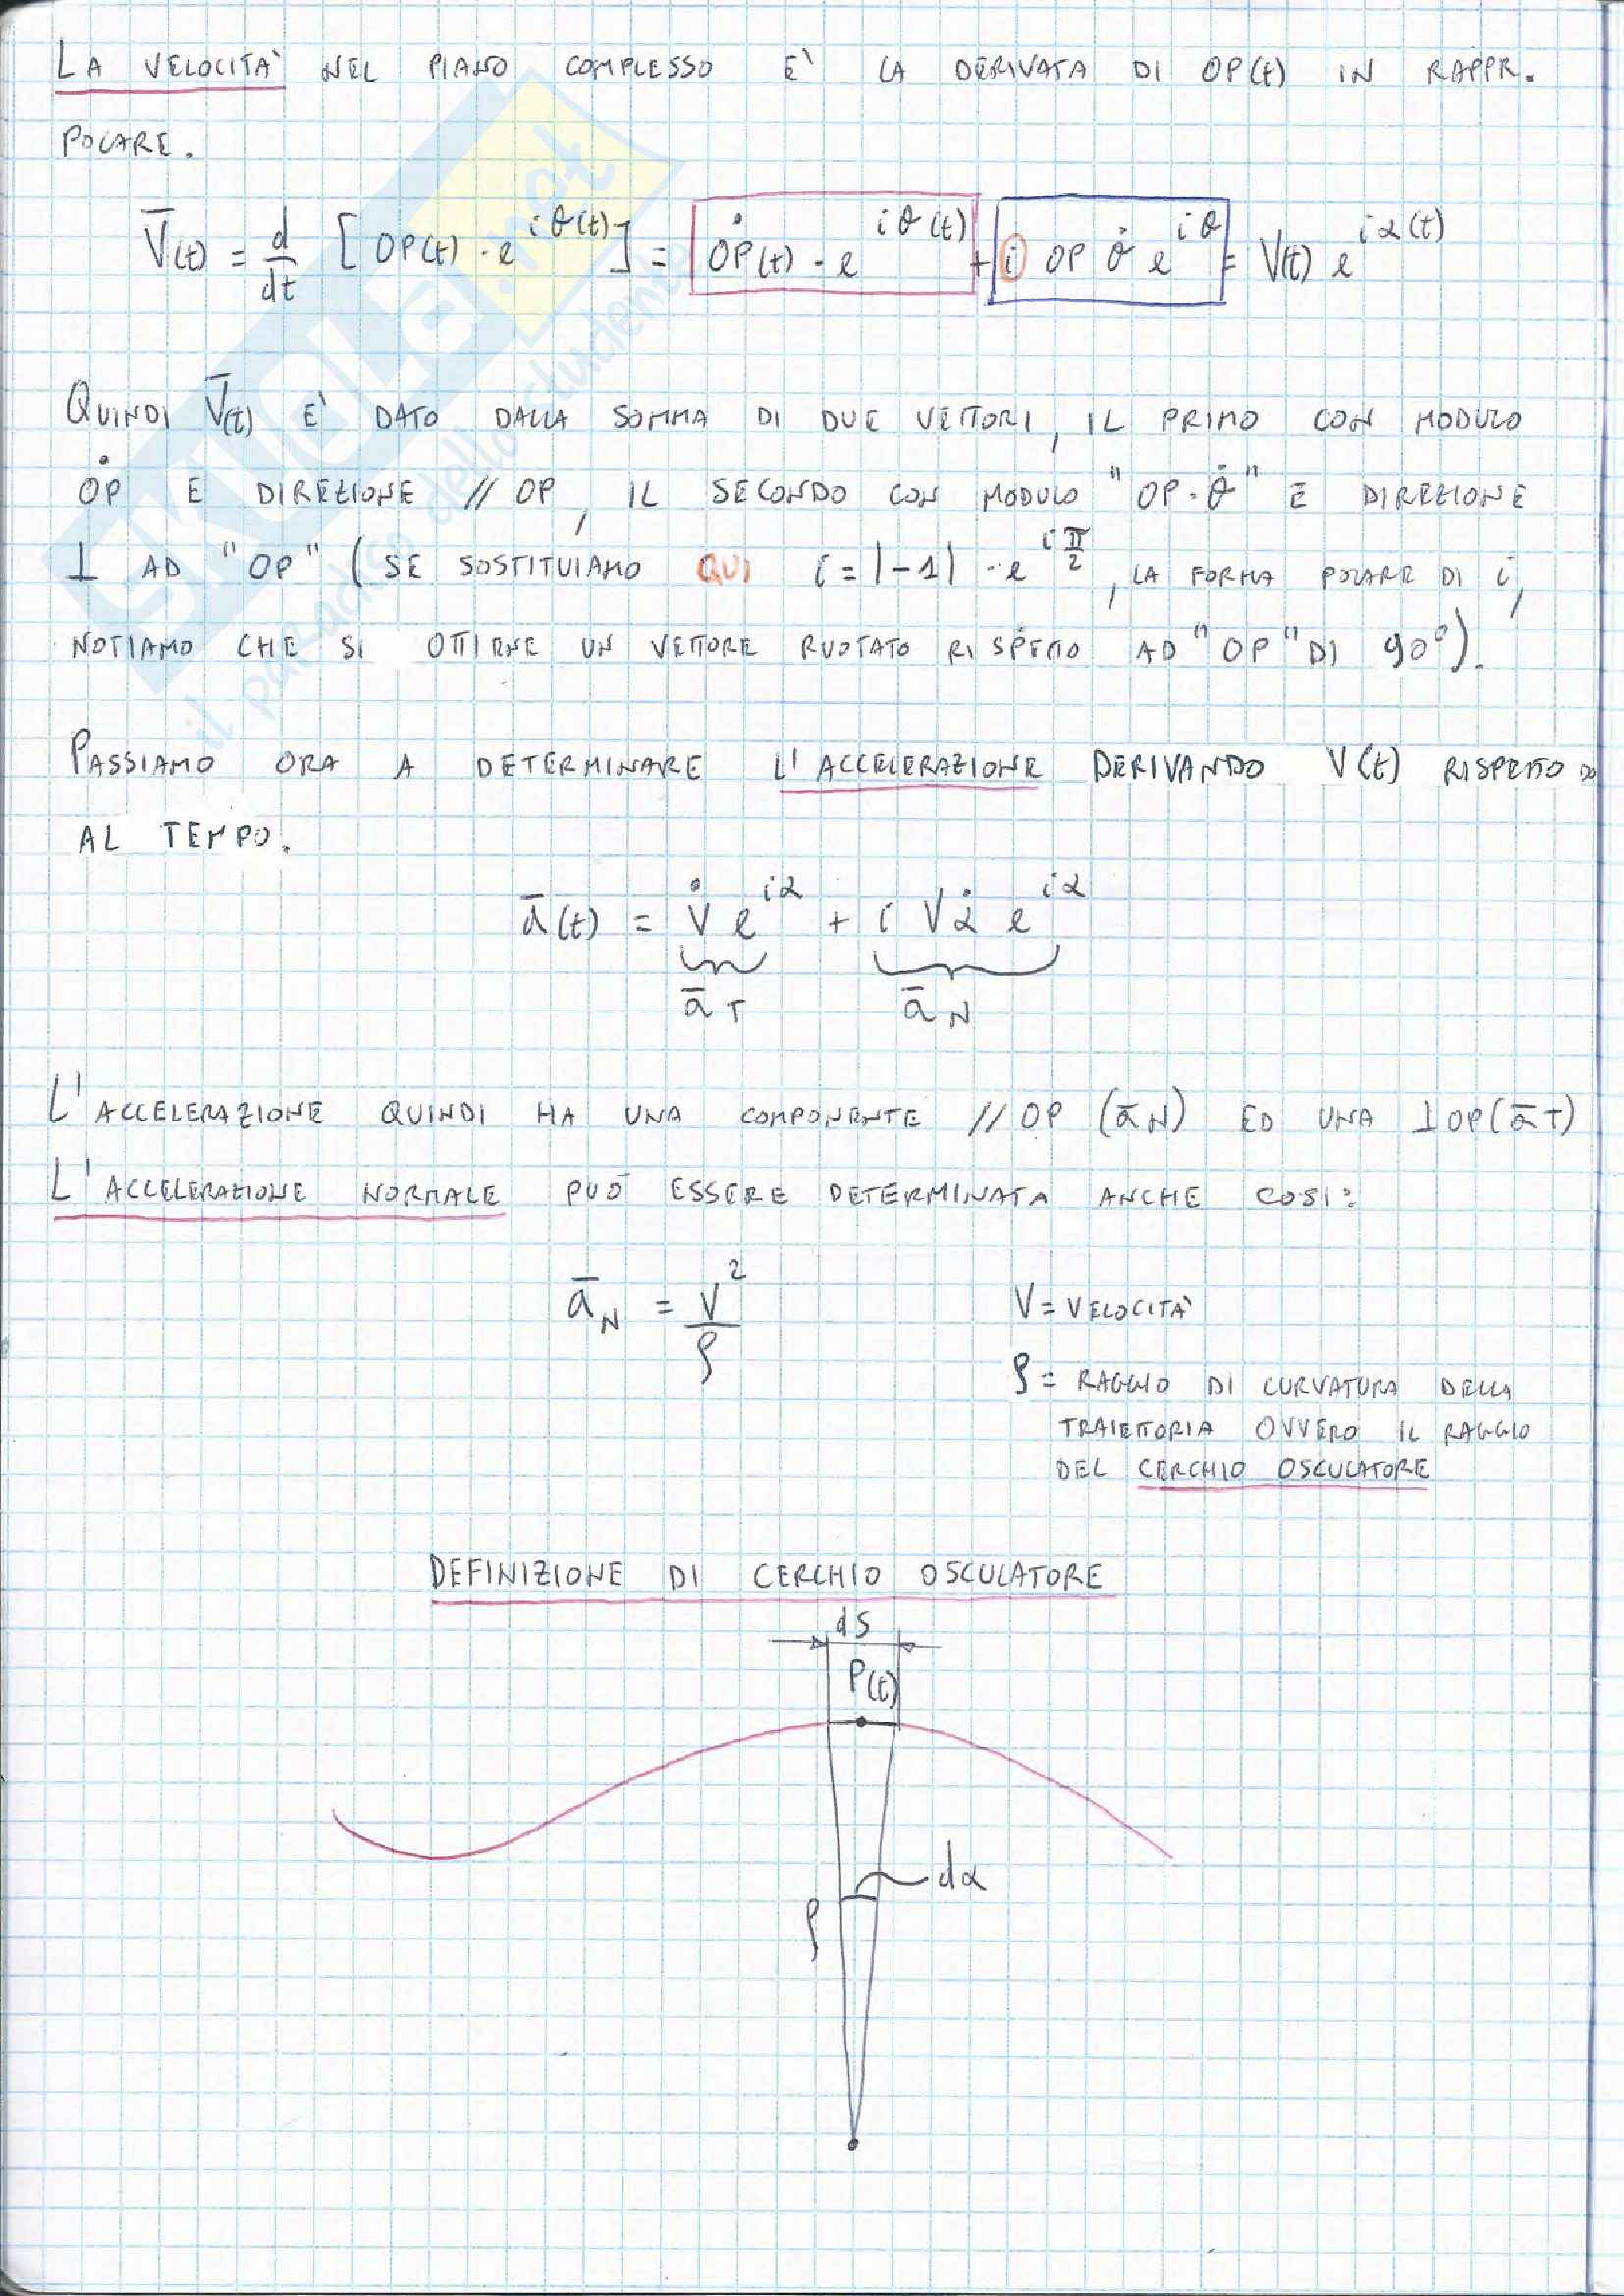 LA VELOCITA' NEL PIANO COMPLESSO E' LA DERIVATA DI OP(t) IN RAPPR.
POLARE.
V̄(t) = d/dt [OP(t) · e^{iθ(t)}] = ȮP(t) · e^{iθ(t)} + i OP θ̇ e^{iθ} = V(t) e^{iα(t)}
QUINDI V̄(t) E' DATO DALLA SOMMA DI DUE VETTORI, IL PRIMO CON MODULO
ȮP E DIREZIONE // OP, IL SECONDO CON MODULO "OP·θ̇" E DIREZIONE
⊥ AD "OP" (SE SOSTITUIAMO QUI i = |-1| · e^{iπ/2}, LA FORMA POLARE DI i,
NOTIAMO CHE SI OTTIENE UN VETTORE RUOTATO RISPETTO AD "OP" DI 90°).
PASSIAMO ORA A DETERMINARE L'ACCELERAZIONE DERIVANDO V(t) RISPETTO
AL TEMPO.
ā(t) = V̇ e^{iα} + i V α̇ e^{iα}
ā T ā N
L'ACCELERAZIONE QUINDI HA UNA COMPONENTE // OP (ā N) ED UNA ⊥ OP (ā T)
L'ACCELERAZIONE NORMALE PUÒ ESSERE DETERMINATA ANCHE COSI:
ā_N = V²/ρ
V = VELOCITA'
ρ = RAGGIO DI CURVATURA DELLA
TRAIETTORIA OVVERO IL RAGGIO
DEL CERCHIO OSCULATORE
DEFINIZIONE DI CERCHIO OSCULATORE
dS
P(t)
dα
ρ
SKUOLA.net
il paradiso dello studente